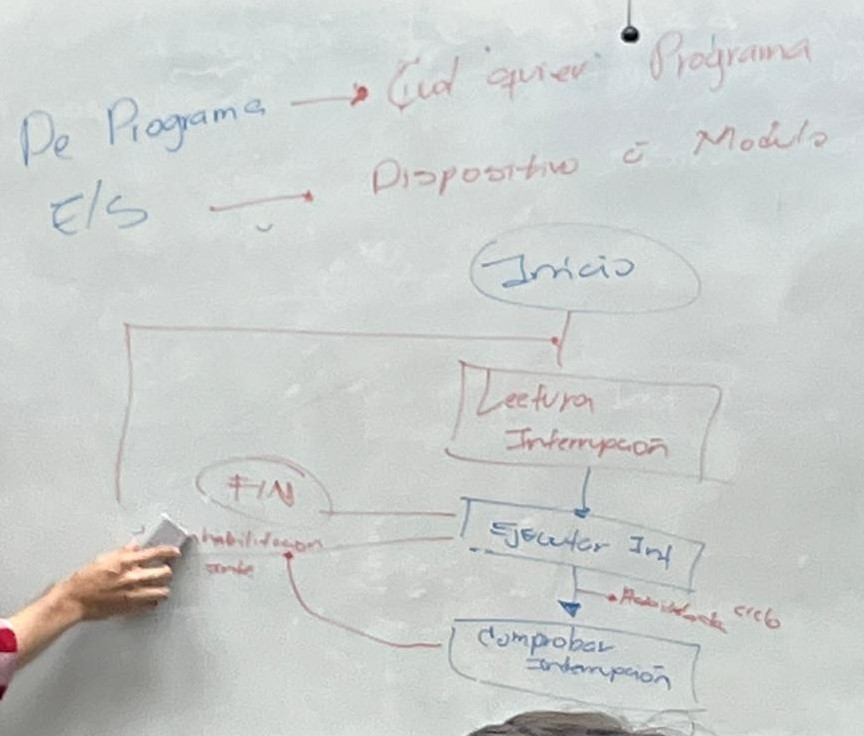 De Programa → Cualquier Programa
E/S → Dispositivo ó Modulo
Inicio
Lectura
Interrupción
FIN
Ejecutar Int
habilitacion
ciclo
Comprobar
Interrupción